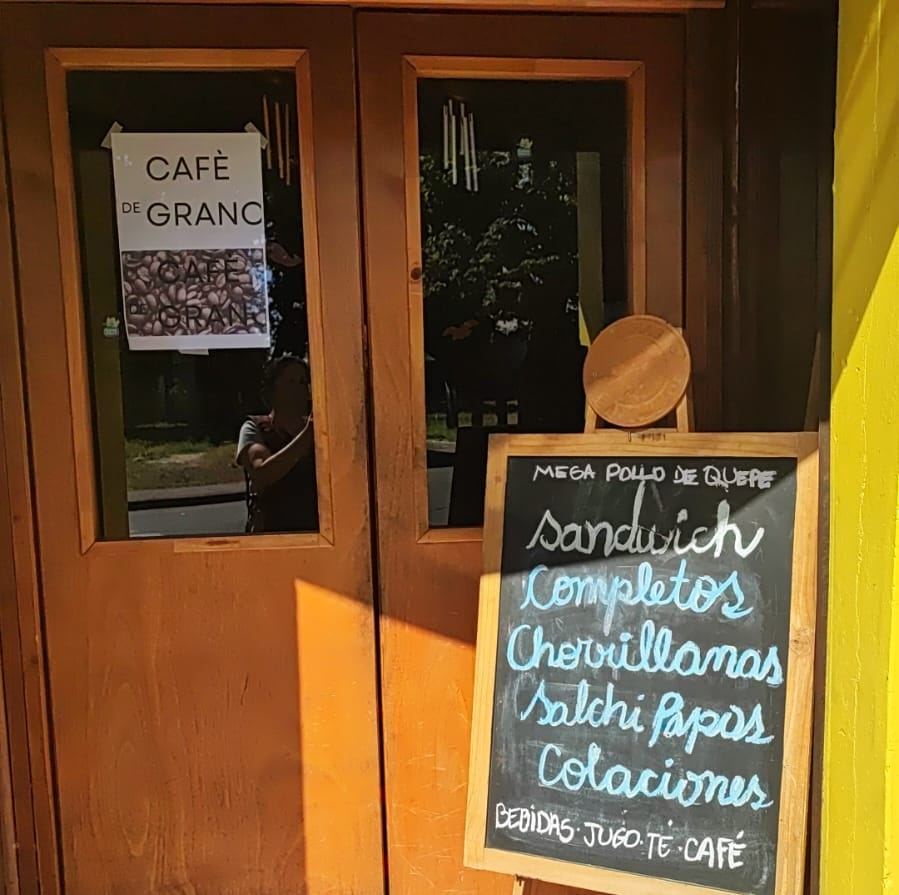 CAFÈ
DE GRANO
CAFÈ
DE GRAN
MEGA POLLO DE QUEPE
Sandwich
Completos
Chorrillanas
Salchi Papas
Colaciones
BEBIDAS · JUGO · TÉ · CAFÉ